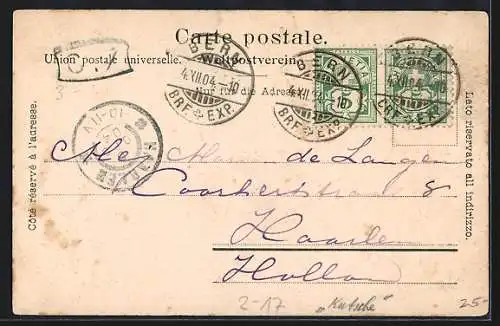 Carte postale.
Union postale universelle. Weltpostverein.
Nur für die Adresse
BERN
4.XII.04.-10
BRF. EXP.
BERN
4.XII.04.-10
BRF. EXP.
BERN
BRF. EXP.
Côté réservé à l'adresse.
Lato riservato all indirizzo.
HAARLEM
de Langen
Coornhertstraat 8
Haarlem
Holland
2-17
„Kutsche"
25-